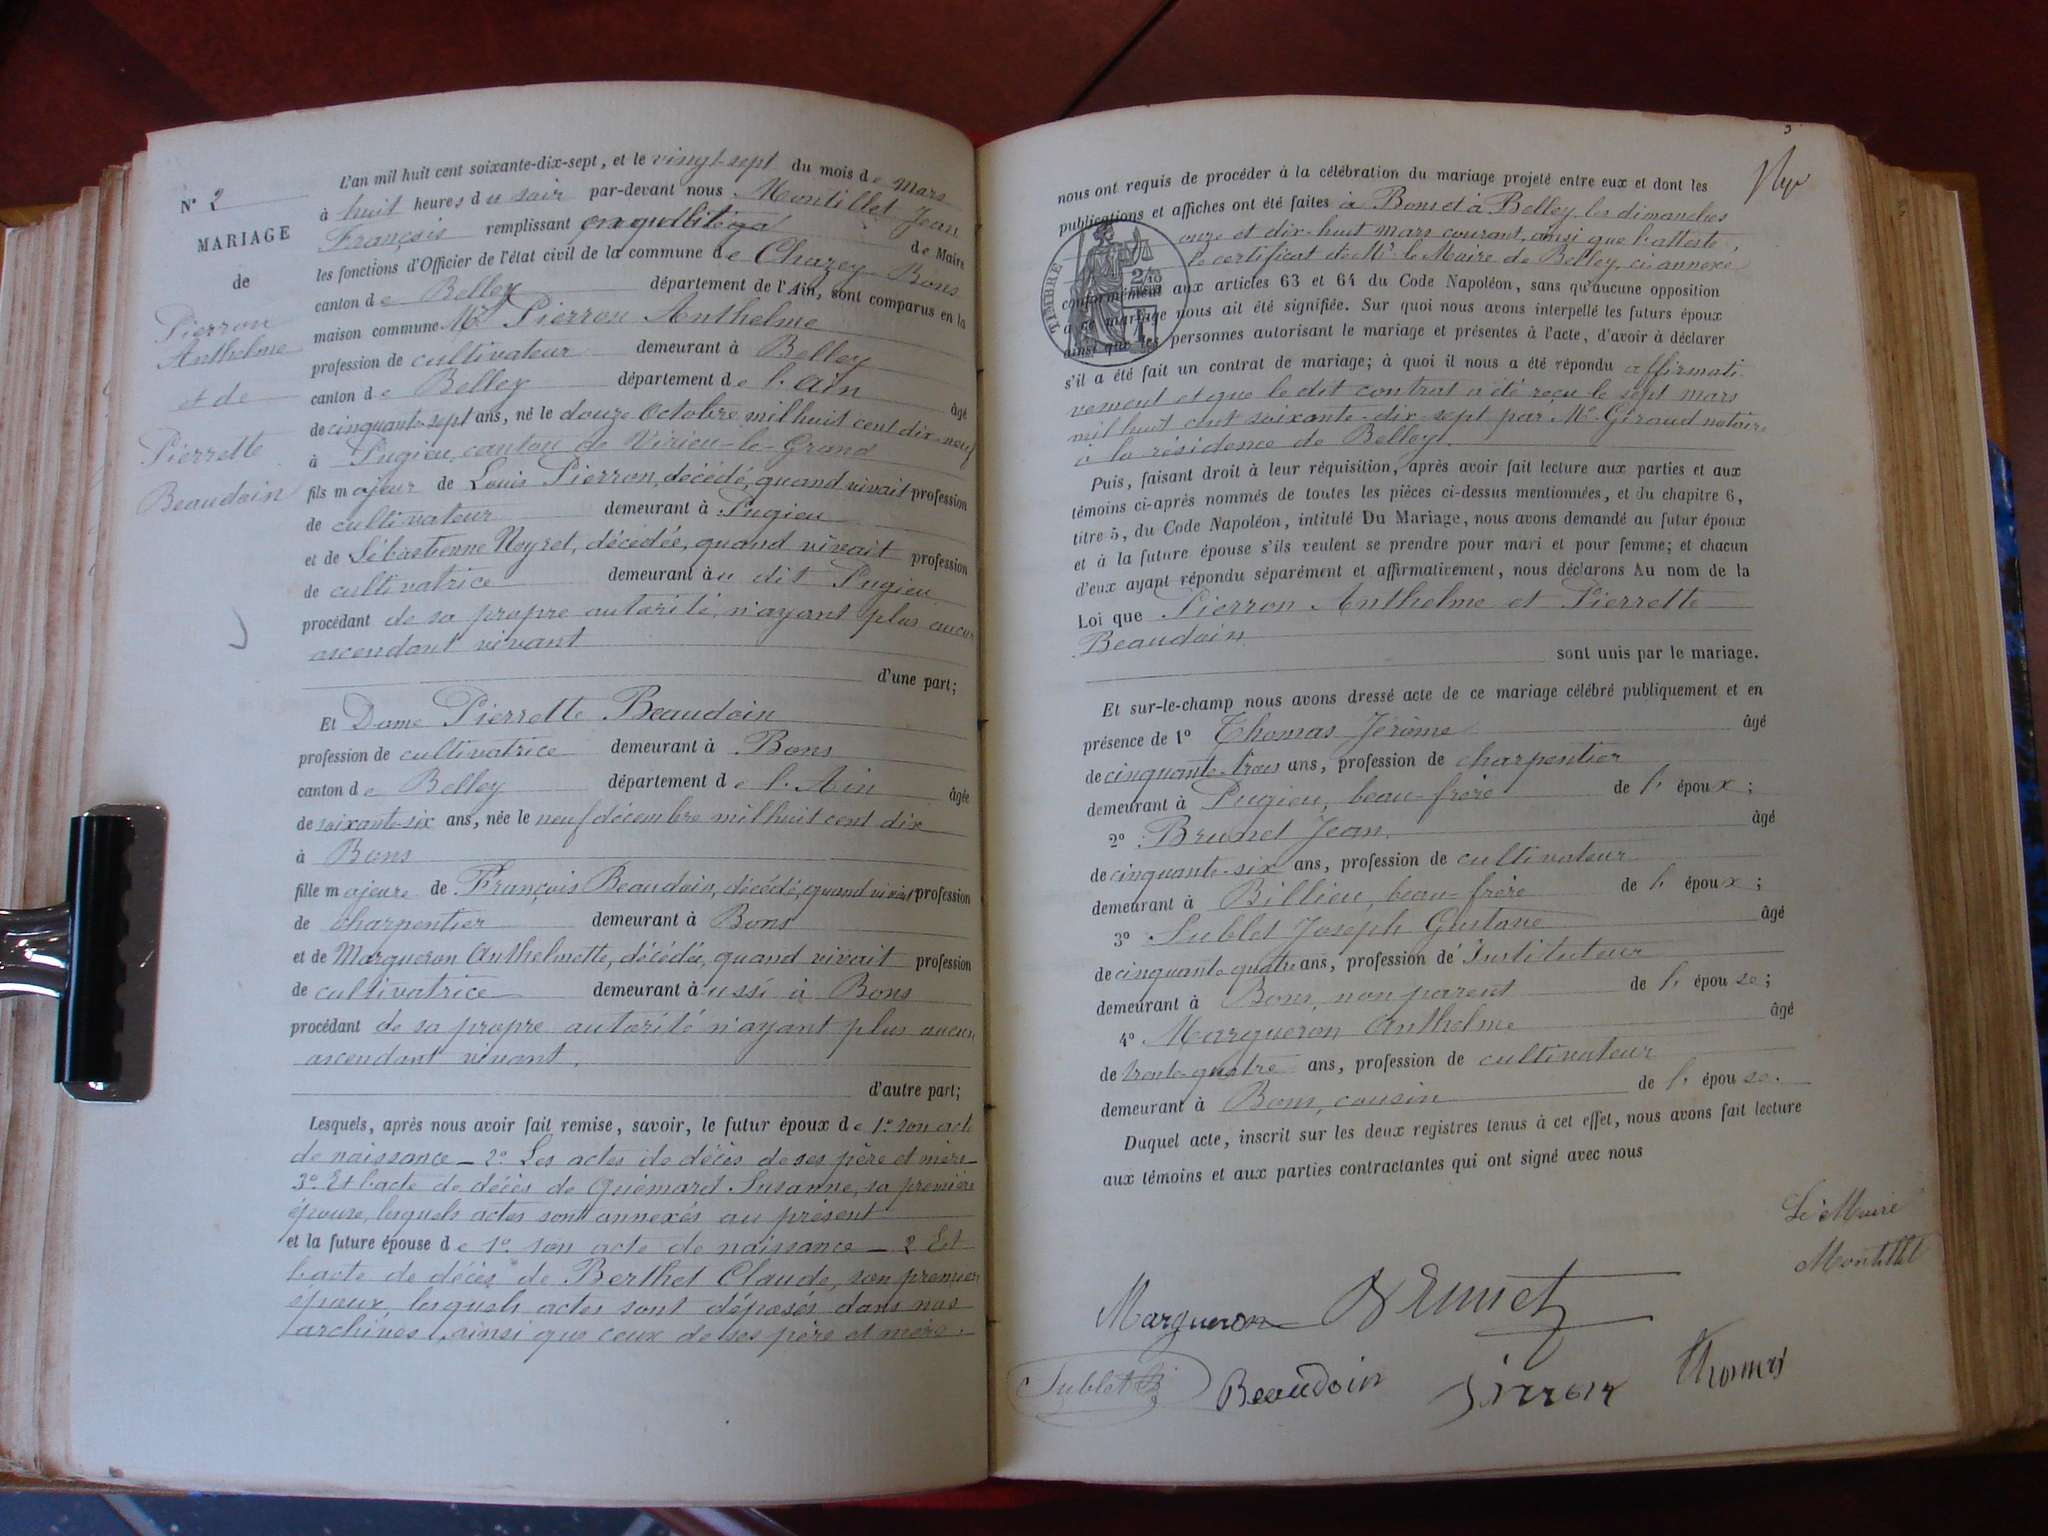 N° 2
MARIAGE
de
Pierron
Anthelme
et de
Pierrette
Beaudoin
L'an mil huit cent soixante-dix-sept, et le vingt-sept du mois de Mars
à huit heures du soir par-devant nous Montillet Jean
François remplissant en qualité de Maire
les fonctions d'Officier de l'état civil de la commune de Chazey-Bons
canton de Belley département de l'Ain, sont comparus en la
maison commune Mr Pierron Anthelme
profession de cultivateur demeurant à Belley
canton de Belley département de l'Ain âgé
de cinquante-sept ans, né le douze Octobre mil huit cent dix-neuf
à Pugieu, canton de Virieu-le-Grand
fils majeur de Louis Pierron, décédé, quand vivait profession
de cultivateur demeurant à Pugieu
et de Sébastienne Neyret, décédée, quand vivait profession
de cultivatrice demeurant au dit Pugieu
procédant de sa propre autorité, n'ayant plus aucun
ascendant vivant
d'une part;
Et Dame Pierrette Beaudoin
profession de cultivatrice demeurant à Bons
canton de Belley département de l'Ain âgée
de soixante-six ans, née le neuf décembre mil huit cent dix
à Bons
fille majeure de François Beaudoin, décédé, quand vivait profession
de charpentier demeurant à Bons
et de Margueron Anthelmette, décédée, quand vivait profession
de cultivatrice demeurant aussi à Bons
procédant de sa propre autorité n'ayant plus aucun
ascendant vivant.
d'autre part;
Lesquels, après nous avoir fait remise, savoir, le futur époux de 1° son acte
de naissance _ 2° Les actes de décès de ses père et mère
3° Et l'acte de décès de Guémard Susanne, sa première
épouse, lesquels actes sont annexés au présent
et la future épouse de 1° son acte de naissance _ 2 Et
l'acte de décès de Berthet Claude, son premier
époux, lesquels actes sont déposés dans nos
archives, ainsi que ceux de ses père et mère.
3
nous ont requis de procéder à la célébration du mariage projeté entre eux et dont les
publications et affiches ont été faites à Bons et à Belley les dimanches
onze et dix-huit mars courant, ainsi que l'atteste,
le certificat de Mr. le Maire de Belley, ci-annexé
TIMBRE
2/10
conformément aux articles 63 et 64 du Code Napoléon, sans qu'aucune opposition
à ce mariage nous ait été signifiée. Sur quoi nous avons interpellé les futurs époux
ainsi que les personnes autorisant le mariage et présentes à l'acte, d'avoir à déclarer
s'il a été fait un contrat de mariage; à quoi il nous a été répondu affirmati-
vement et que le dit contrat a été reçu le sept mars
mil huit cent soixante-dix-sept par Me Giraud notaire
à la résidence de Belley.
Puis, faisant droit à leur réquisition, après avoir fait lecture aux parties et aux
témoins ci-après nommés de toutes les pièces ci-dessus mentionnées, et du chapitre 6,
titre 5, du Code Napoléon, intitulé Du Mariage, nous avons demandé au futur époux
et à la future épouse s'ils veulent se prendre pour mari et pour femme; et chacun
d'eux ayant répondu séparément et affirmativement, nous déclarons Au nom de la
Loi que Pierron Anthelme et Pierrette
Beaudoin
sont unis par le mariage.
Et sur-le-champ nous avons dressé acte de ce mariage célébré publiquement et en
présence de 1° Thomas Jérôme âgé
de cinquante-trois ans, profession de charpentier
demeurant à Pugieu, beau-frère de l'époux;
2° Brunet Jean, âgé
de cinquante-six ans, profession de cultivateur
demeurant à Billieu, beau-frère de l'époux;
3° Sublet Joseph Gustave âgé
de cinquante quatre ans, profession de Instituteur
demeurant à Bons, non parent de l'épouse;
4° Margueron Anthelme âgé
de trente-quatre ans, profession de cultivateur
demeurant à Bons, cousin de l'épouse.
Duquel acte, inscrit sur les deux registres tenus à cet effet, nous avons fait lecture
aux témoins et aux parties contractantes qui ont signé avec nous
Le Maire
Montillet
Margueron Brunet
Sublet Beaudoin Pirron Thomas